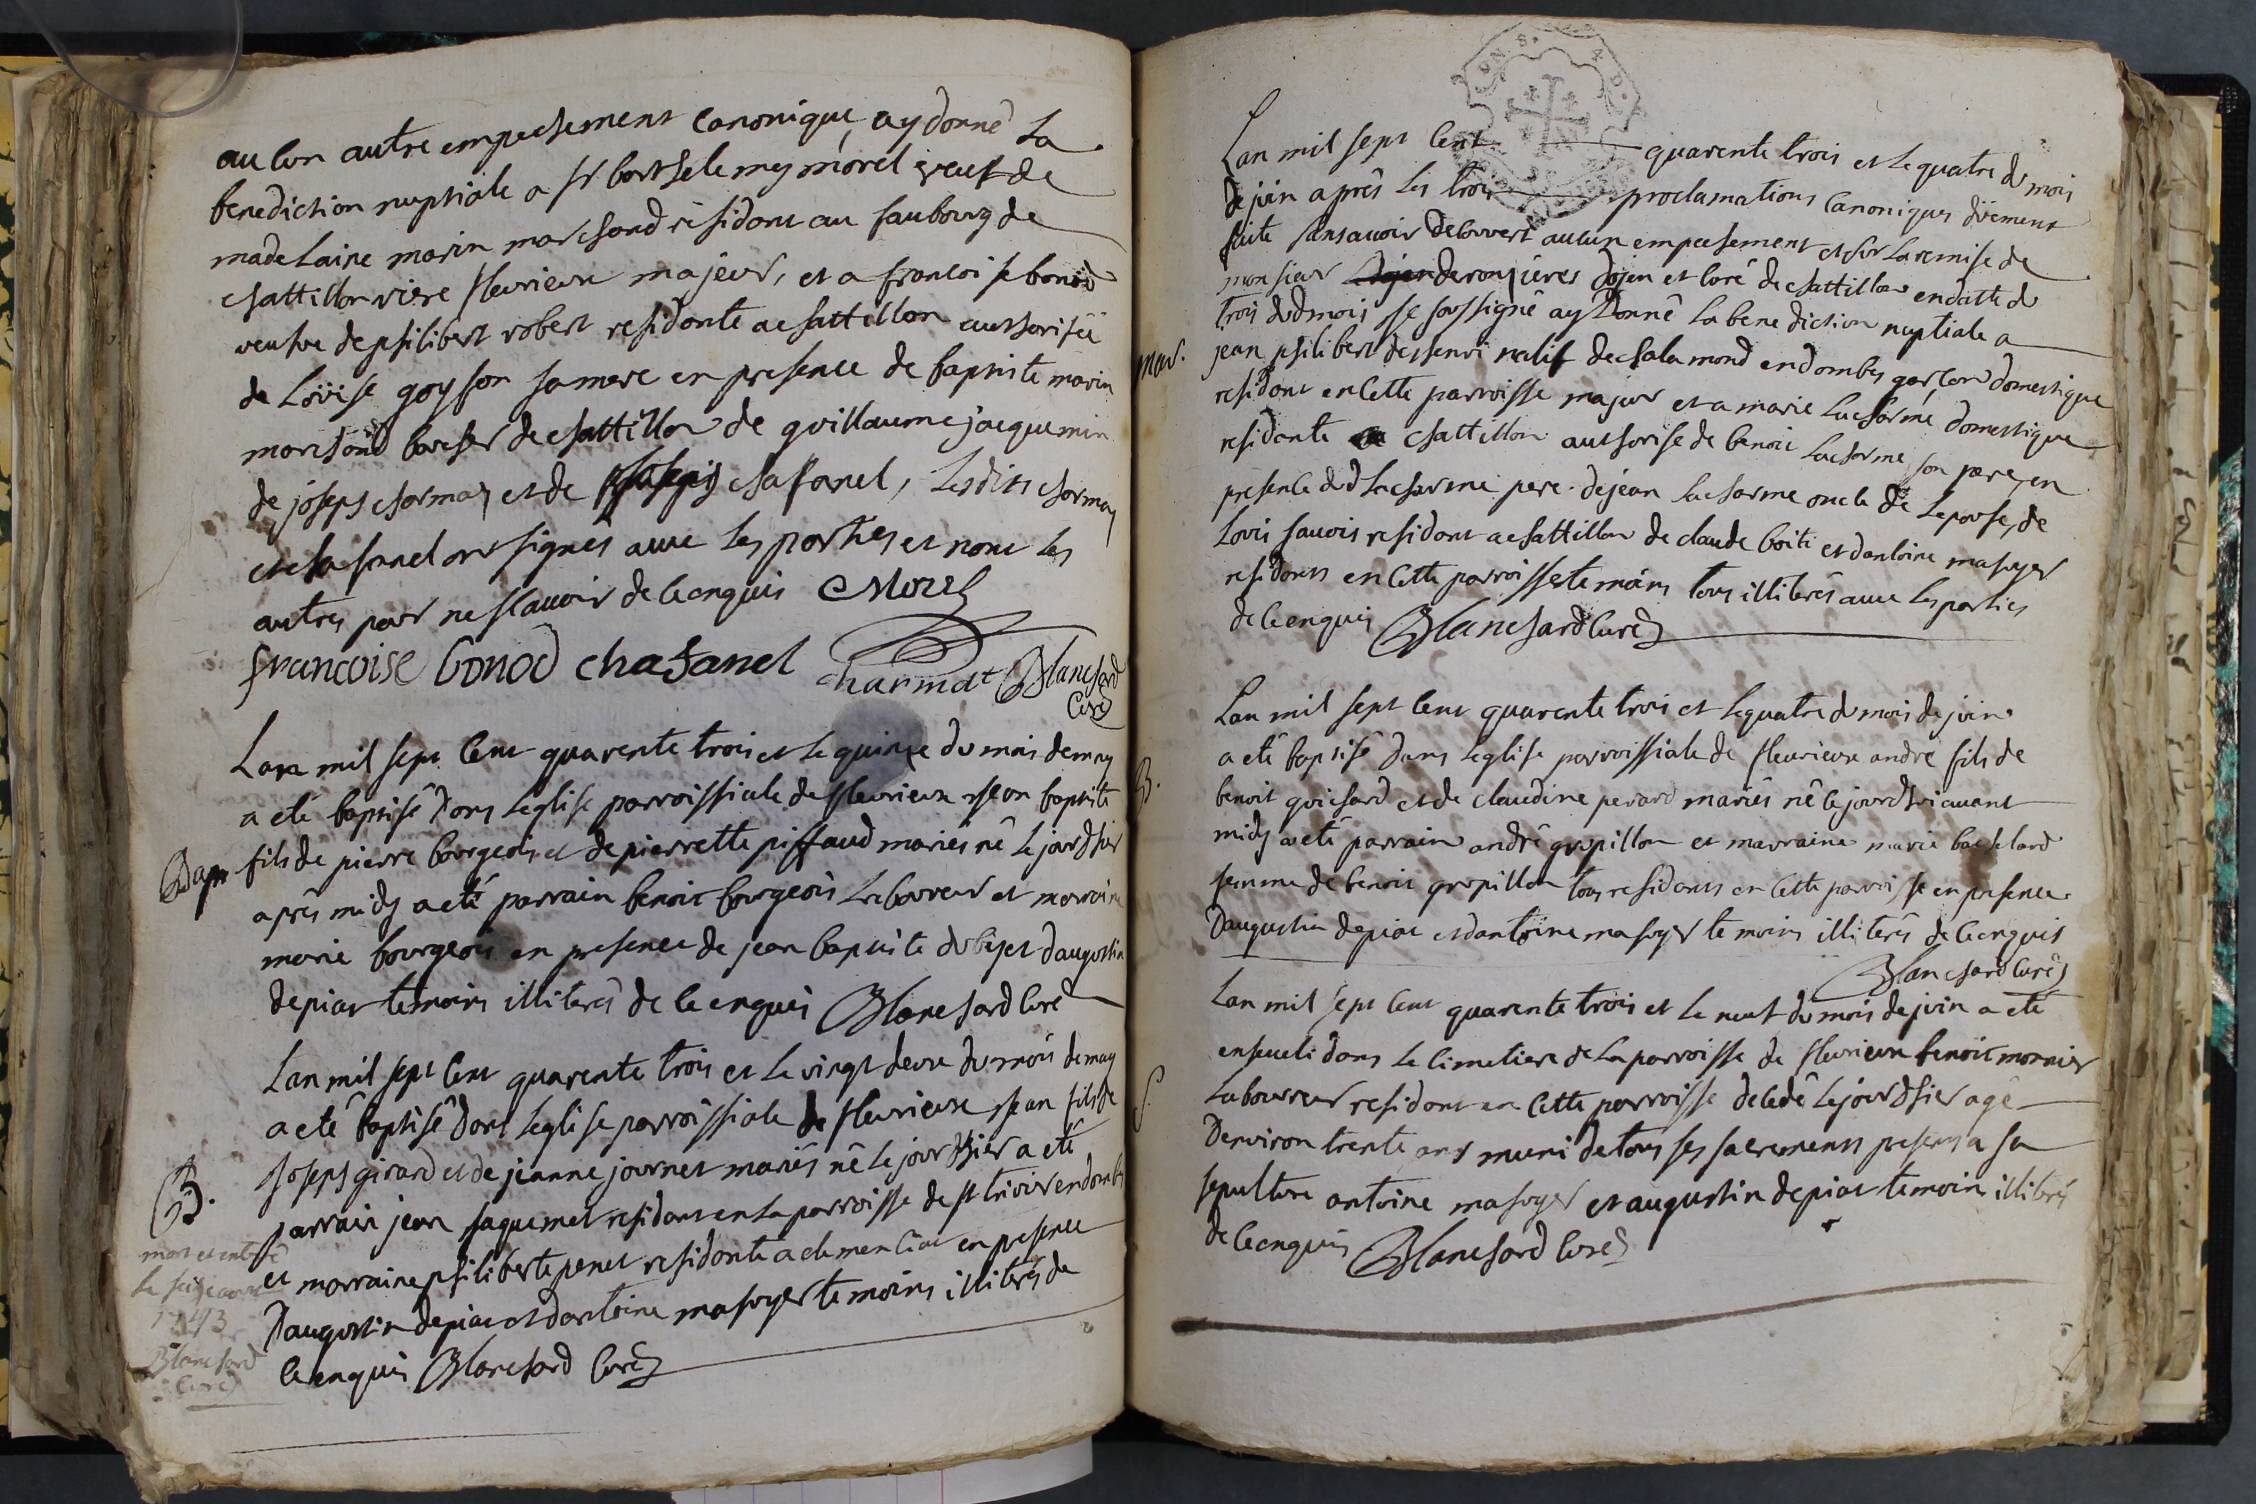 aucun autre empechement canonique, ay donné la
benediction nuptiale a sr barthelemy morel veuf de
madelaine marin marchand residant au faubourg de
chattillon riere fleurieux majeur, et a francoise bonod
veufve de philibert robert residante a chattillon authorisée
de Loüise goyffon sa mere en presence de baptiste marin
marchand boucher de chattillon de guillaume jacquemin
de joseph charmat et de chafanel, lesdits charmat
et chafanel ont signés avec les parties et nont les
autres pour ne scavoir de ce enquis Morel
francoise bonod chafanel charmat Blanchard
Curé
Lan mil sept cent quarente trois et le quinze du mois de may
a eté baptisé dans leglise parroissiale de fleurieux jean baptiste
Bap fils de pierre bourgeois et de pierrette piffaud mariés né le jour dhier
après midy a eté parrain benoit bourgeois laboureur et marraine
marie bourgeois en presence de jean baptiste dubost et daugustin
depias temoins illiterés de ce enquis Blanchard curé
Lan mil sept cent quarente trois et le vingt deux du mois de may
a eté baptisé dans leglise parroissiale de fleurieux jean fils de
B. joseph girard et de jeanne journet mariés né le jour dhier a eté
parrain jean jaquemet residant en la parroisse de st trivier en dombes
et marraine philiberte penet residante a clemencia en presence
daugustin depias et dantoine masuyer temoins illiterés de
ce enquis Blanchard curé
mort et enterré
le seize
1743
Blanchard
curé
Lan mil sept cent quarente trois et le quatre du mois
de juin après les trois proclamations canoniques düement
faite sans avoir decouvert aucun empechement et sur la remise de
monsieur derougieres dojen et curé de chattillon en datte du
trois dud mois je soussigné ay donné la benediction nuptiale a
mar. jean philibert dessenri natif de chalamond en dombes garcon domestique
residant en cette parroisse majeur et a marie lacharme domestique
residante a chattillon authorise de benoit lacharme son pere, en
presence dud lacharme pere. de jean lacharme oncle de lepouse, de
Louis savois residant a chattillon de claude boiti et dantoine masuyer
residents en cette parroisse temoins tous illiterés avec les parties
de ce enquis Blanchard curé
Lan mil sept cent quarente trois et le quatre du mois de juin
a eté baptisé dans leglise parroissiale de fleurieux andré fils de
B. benoit guichard et de claudine perard mariés né le jourdhui avant
midy a eté parrain andré gropillon et marraine marie bachelard
femme de benoit gropillon tous residants en cette parroisse en presence
daugustin depias et dantoine masuyer temoins illiterés de ce enquis
Blanchard curé
Lan mil sept cent quarente trois et le neuf du mois de juin a eté
enseveli dans le cimetiere de la parroisse de fleurieux benoit monnier
S. laboureur residant en cette parroisse decedé le jour dhier agé
denviron trente ans muni de tous ses sacrements presents a sa
sepulture antoine masuyer et augustin depias temoins illitrés
de ce enquis Blanchard curé